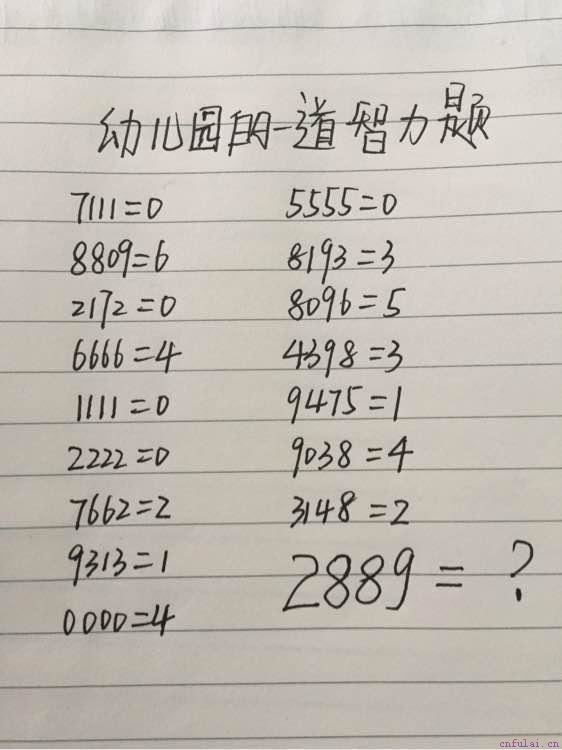 幼儿园的一道智力题
7111=0
8809=6
2172=0
6666=4
1111=0
2222=0
7662=2
9313=1
0000=4
5555=0
8193=3
8096=5
4398=3
9475=1
9038=4
3148=2
2889=?
cnfulai.cn